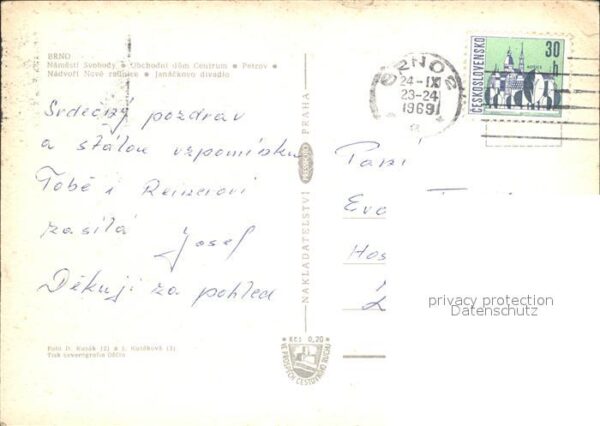 BRNO
Náměstí Svobody • Obchodní dům Centrum • Petrov •
Nádvoří Nové radnice • Janáčkovo divadlo
Srdečný pozdrav
a stálou vzpomínku
Tobě i
zasílá
Josef
Děkuji za pohled
Foto D. Kusák (2) a
Tisk Severografia Děčín
NAKLADATELSTVÍ PRESSFOTO PRAHA
BRNO 2
24-IX
23-24
1969
a
ČESKOSLOVENSKO
30
h
Paní
Eva
Hos
privacy protection
Datenschutz
Kčs 0,20
VE PROSPĚCH CESTOVNÍHO RUCHU